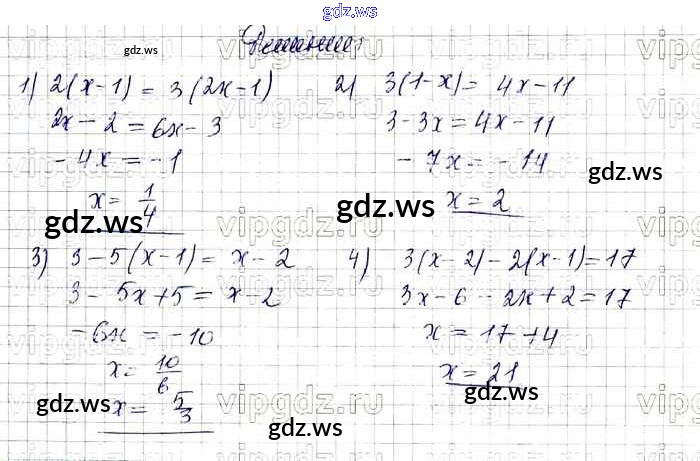 gdz.ws
Решение:
1) 2(x-1) = 3(2x-1)
2x - 2 = 6x - 3
- 4x = -1
x = 1/4
2) 3(1-x) = 4x - 11
3 - 3x = 4x - 11
- 7x = - 14
x = 2
3) 3 - 5(x-1) = x - 2
3 - 5x + 5 = x - 2
- 6x = - 10
x = 10/6
x = 5/3
4) 3(x-2) - 2(x-1) = 17
3x - 6 - 2x + 2 = 17
x = 17 + 4
x = 21
gdz.ws
gdz.ws
gdz.ws
gdz.ws
gdz.ws
gdz.ws
gdz.ws
gdz.ws
vipgdz.ru
vipgdz.ru
vipgdz.ru
vipgdz.ru
vipgdz.ru
vipgdz.ru